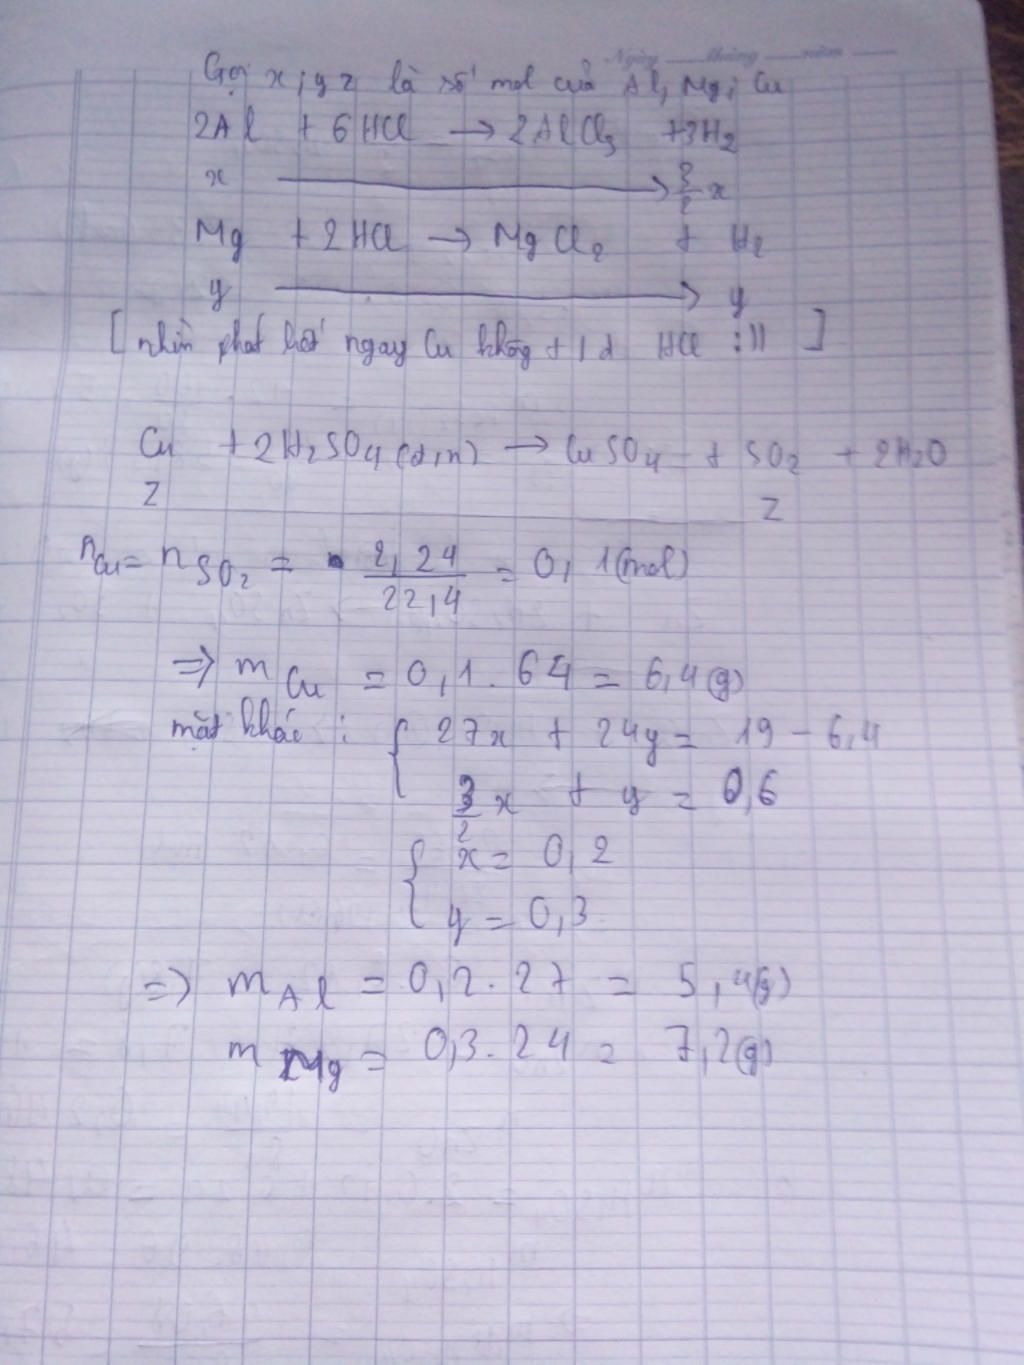 Ngày tháng năm
Gọi x; y z là số mol của Al, Mg, Cu
2Al + 6HCl → 2AlCl3 + 3H2
x → 3/2 x
Mg + 2HCl → MgCl2 + H2
y → y
[nhìn phát biết ngay Cu không + HCl :))]
Cu + 2H2SO4(đ,n) → CuSO4 + SO2 + 2H2O
Z Z
nCu = nSO2 = 2,24/22,4 = 0,1(mol)
=> mCu = 0,1.64 = 6,4(g)
mặt khác : { 27x + 24y = 19 - 6,4
3/2 x + y = 0,6
{ x = 0,2
y = 0,3
=> mAl = 0,2.27 = 5,4(g)
mMg = 0,3.24 = 7,2(g)